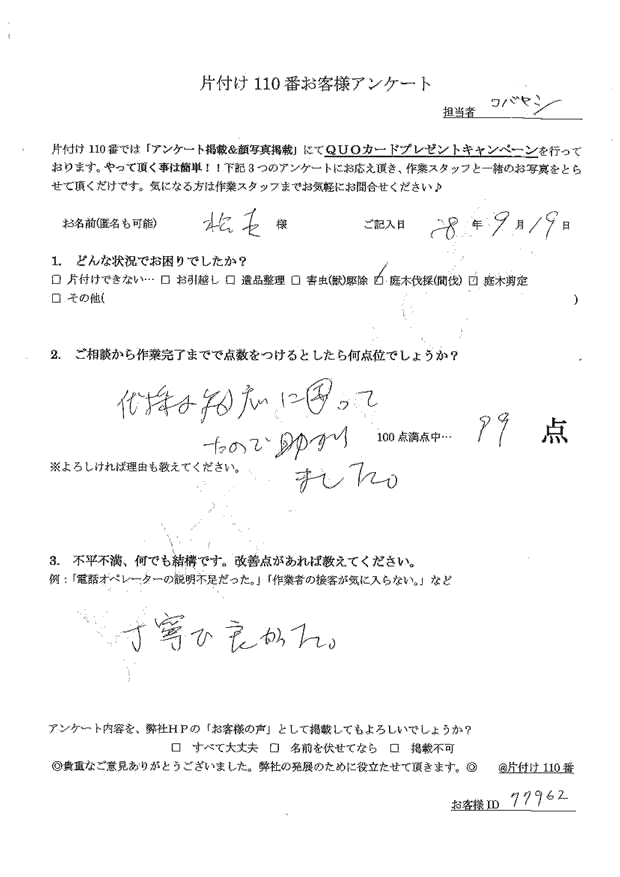 片付け 110 番お客様アンケート
担当者 コバヤシ
片付け 110 番では「アンケート掲載&顔写真掲載」にてQUOカードプレゼントキャンペーンを行って
おります。やって頂く事は簡単!!下記3つのアンケートにお応え頂き、作業スタッフと一緒のお写真をとら
せて頂くだけです。気になる方は作業スタッフまでお気軽にお問合せください♪
お名前(匿名も可能) 様 ご記入日 28 年 9 月 19 日
1. どんな状況でお困りでしたか?
□ 片付けできない… □ お引越し □ 遺品整理 □ 害虫(獣)駆除 ☑ 庭木伐採(間伐) ☑ 庭木剪定
□ その他( )
2. ご相談から作業完了までで点数をつけるとしたら何点位でしょうか?
伐採は に困って
たので助かり 100 点満点中… 99 点
※よろしければ理由も教えてください。
ました。
3. 不平不満、何でも結構です。改善点があれば教えてください。
例:「電話オペレーターの説明不足だった。」「作業者の接客が気に入らない。」など
丁寧で良かった。
アンケート内容を、弊社HPの「お客様の声」として掲載してもよろしいでしょうか?
□ すべて大丈夫 □ 名前を伏せてなら □ 掲載不可
◎貴重なご意見ありがとうございました。弊社の発展のために役立たせて頂きます。◎ @片付け 110 番
お客様 ID 77962